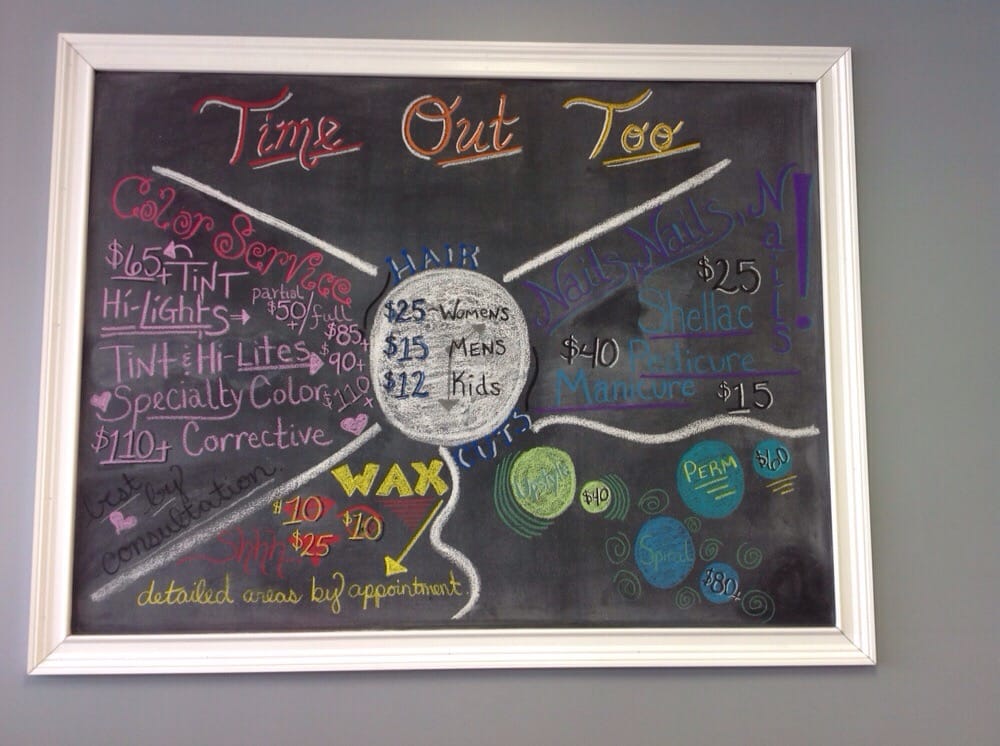 Time Out Too
Color Service
$65+ TINT
Hi-Lights → partial $50+/full $85+
Tint & Hi-Lites → $90+
Specialty Color $110+
$110+ Corrective
best by
consultation.
HAIR
$25 ~ Womens
$15 Mens
$12 Kids
CUTS
Nails, Nails, Nails!
$25
Shellac
$40 Pedicure
Manicure $15
WAX
$10 $10
Shhh! $25
detailed areas by appointment.
Upstyle $40
PERM $60
Spiral $80+